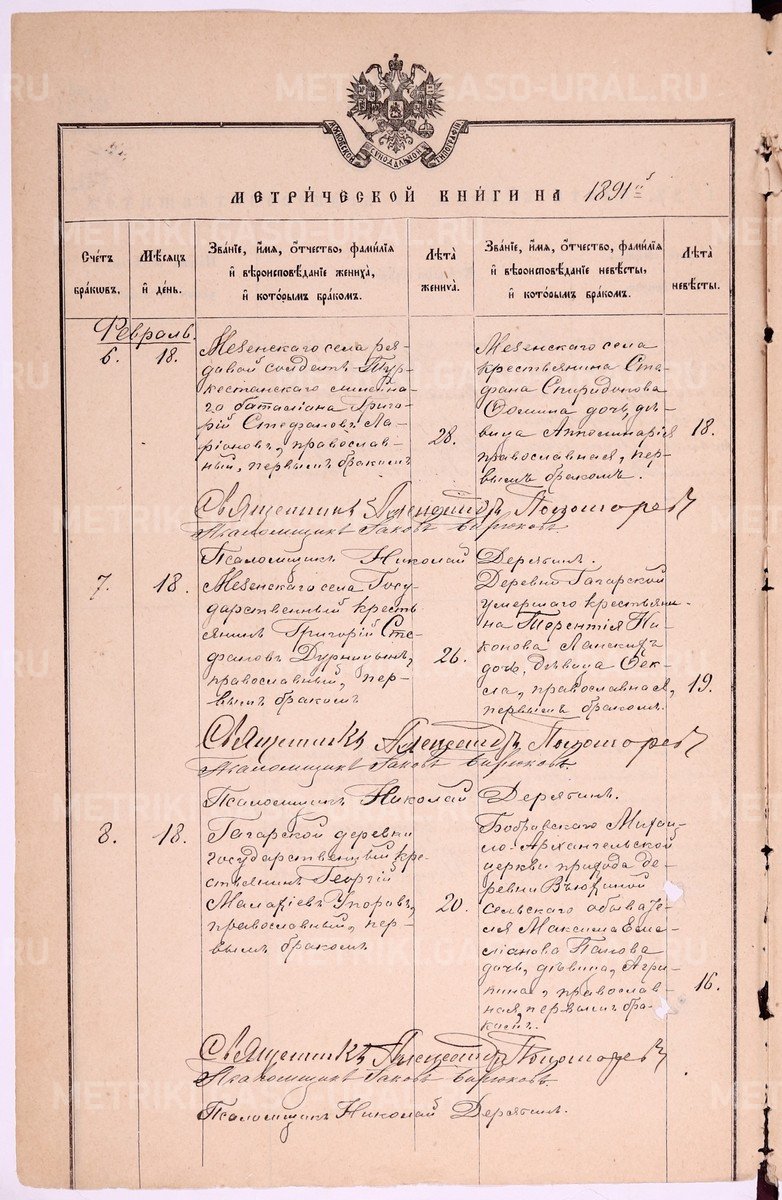 МОСКОВСКОЙ СѴНОДАЛЬНОЙ ТИПОГРАФІИ
МЕТРИЧЕСКОЙ КНИГИ НА 1891й
Счетъ браковъ.
Мѣсяцъ и день.
Званіе, имя, отчество, фамилія и вѣроисповѣданіе жениха, и которымъ бракомъ.
Лѣта жениха.
Званіе, имя, отчество, фамилія и вѣроисповѣданіе невѣсты, и которымъ бракомъ.
Лѣта невѣсты.
Февраль.
6.
18.
Мезенскаго села ря-
давой солдатъ Тур-
кестанскаго линейна-
го баталіана Григо-
рій Стефановъ Ла-
ріоновъ, православ-
ный, первымъ бракомъ
28.
Мезенскаго села
крестьянина Сте-
фана Спиридонова
Ѳомина дочь, дѣ-
вица Апполинарія
православная, пер-
вымъ бракомъ.
18.
Священникъ Александръ
Псаломщикъ Іаковъ Бирюковъ
Псаломщикъ Николай Дерябинъ.
7.
18.
Мезенскаго села Госу-
дарственный кресть-
янинъ Григорій Сте-
фановъ Дурницынъ,
православный, пер-
вымъ бракомъ
26.
Деревни Гагарской
умершаго крестьяни-
на Терентія Ни-
конова Ланскихъ
дочь, дѣвица Ѳек-
ла, православная,
первымъ бракомъ.
19.
Священникъ Александръ
Псаломщикъ Іаковъ Бирюковъ.
Псаломщикъ Николай Дерябинъ.
8.
18.
Гагарской деревни
государственный кре-
стьянинъ Георгій
Малахіевъ Упоровъ,
православный, пер-
вымъ бракомъ
20.
Бобравскаго Михаи-
ло-Архангельской
церкви прихода де-
ревни Вьюхиной
сельскаго обывате-
ля Максима Емел-
іанова Панова
дочь, дѣвица, Агри-
пина, православ-
ная, первымъ бра-
комъ.
16.
Священникъ Александръ
Псаломщикъ Іаковъ Бирюковъ
Псаломщикъ Николай Дерябинъ.
METRIKI.GASO-URAL.RU